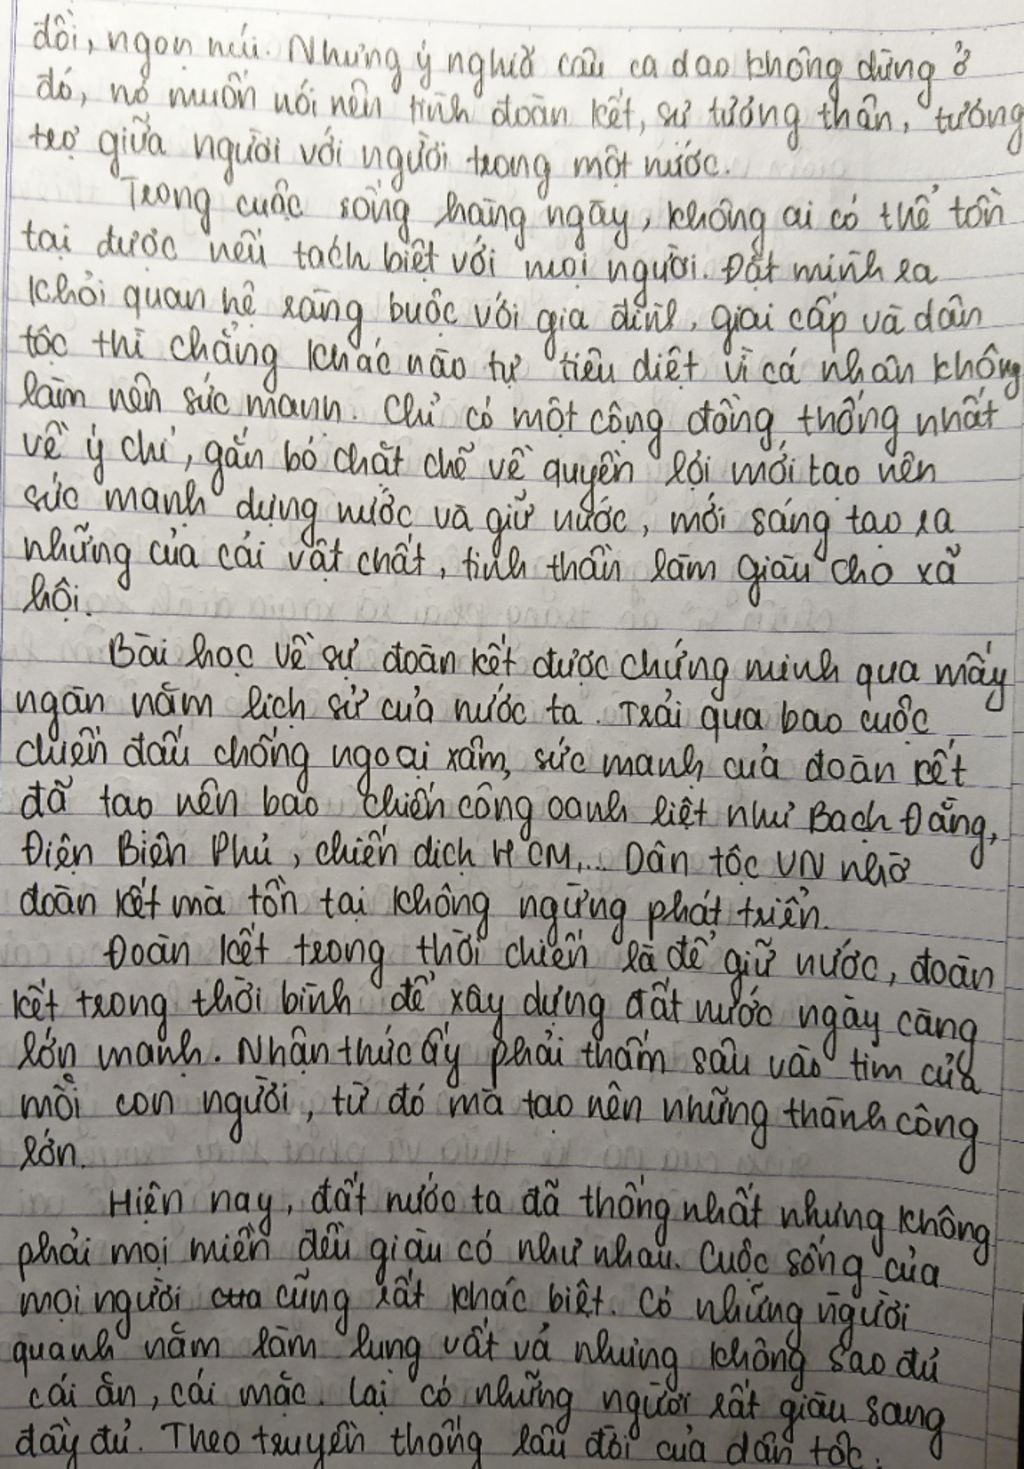 đồi, ngọn núi. Nhưng ý nghĩa câu ca dao không dừng ở
đó, nó muốn nói nên tinh đoàn kết, sự tương thân, tương
trợ giữa người với người trong một nước.
Trong cuộc sống hàng ngày, không ai có thể tồn
tại được nếu tách biệt với mọi người. Đặt mình ra
khỏi quan hệ ràng buộc với gia đình, giai cấp và dân
tộc thì chẳng khác nào tự tiêu diệt vì cá nhân không
làm nên sức mạnh. Chỉ có một cộng đồng thống nhất
về ý chí, gắn bó chặt chẽ về quyền lợi mới tạo nên
sức mạnh dựng nước và giữ nước, mới sáng tạo ra
những của cải vật chất, tinh thần làm giàu cho xã
hội.
Bài học về sự đoàn kết được chứng minh qua mấy
ngàn năm lịch sử của nước ta. Trải qua bao cuộc
chiến đấu chống ngoại xâm, sức mạnh của đoàn kết
đã tạo nên bao chiến công oanh liệt như Bạch Đằng,
Điện Biên Phủ, chiến dịch HCM,... Dân tộc VN nhờ
đoàn kết mà tồn tại không ngừng phát triển.
Đoàn kết trong thời chiến là để giữ nước, đoàn
kết trong thời bình để xây dựng đất nước ngày càng
lớn mạnh. Nhận thức ấy phải thấm sâu vào tim của
mỗi con người, từ đó mà tạo nên những thành công
lớn.
Hiện nay, đất nước ta đã thống nhất nhưng không
phải mọi miền đều giàu có như nhau. Cuộc sống của
mọi người cũng rất khác biệt. Có những người
quanh năm làm lụng vất vả nhưng không sao đủ
cái ăn, cái mặc. Lại có những người rất giàu sang
đầy đủ. Theo truyền thống lâu đời của dân tộc.